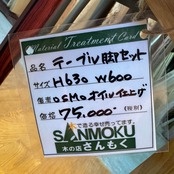 Material Treatment Card
品名 テーブル脚セット
サイズ H630 W600
備考 OSMOオイル仕上げ
価格 75,000- (税別)
木で造る幸せ売ってます。
SANMOKU
木の店 さんもく